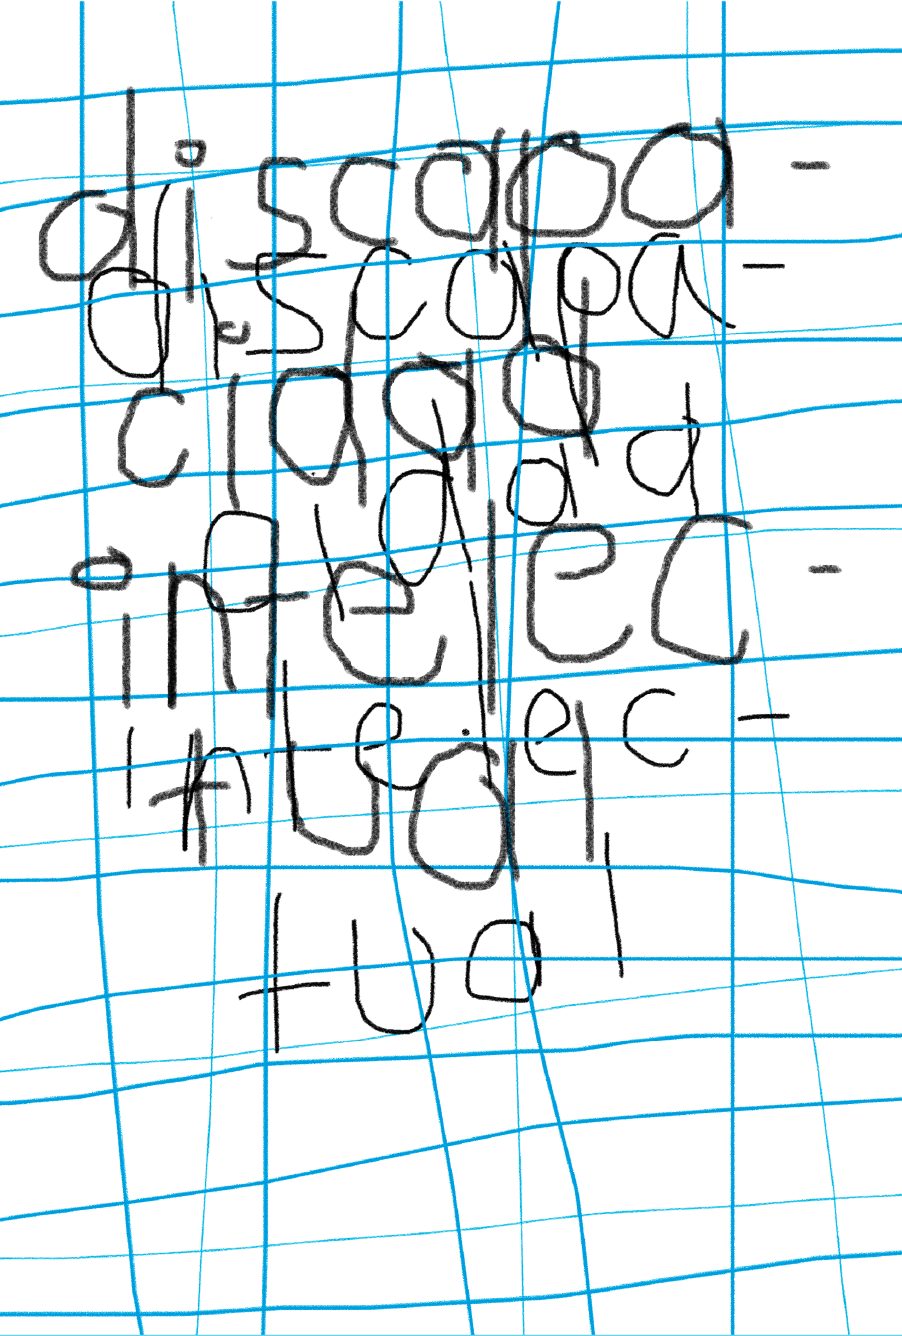 discapa-
discapa-
cidad
cidad
intelec-
intelec-
tual
tual